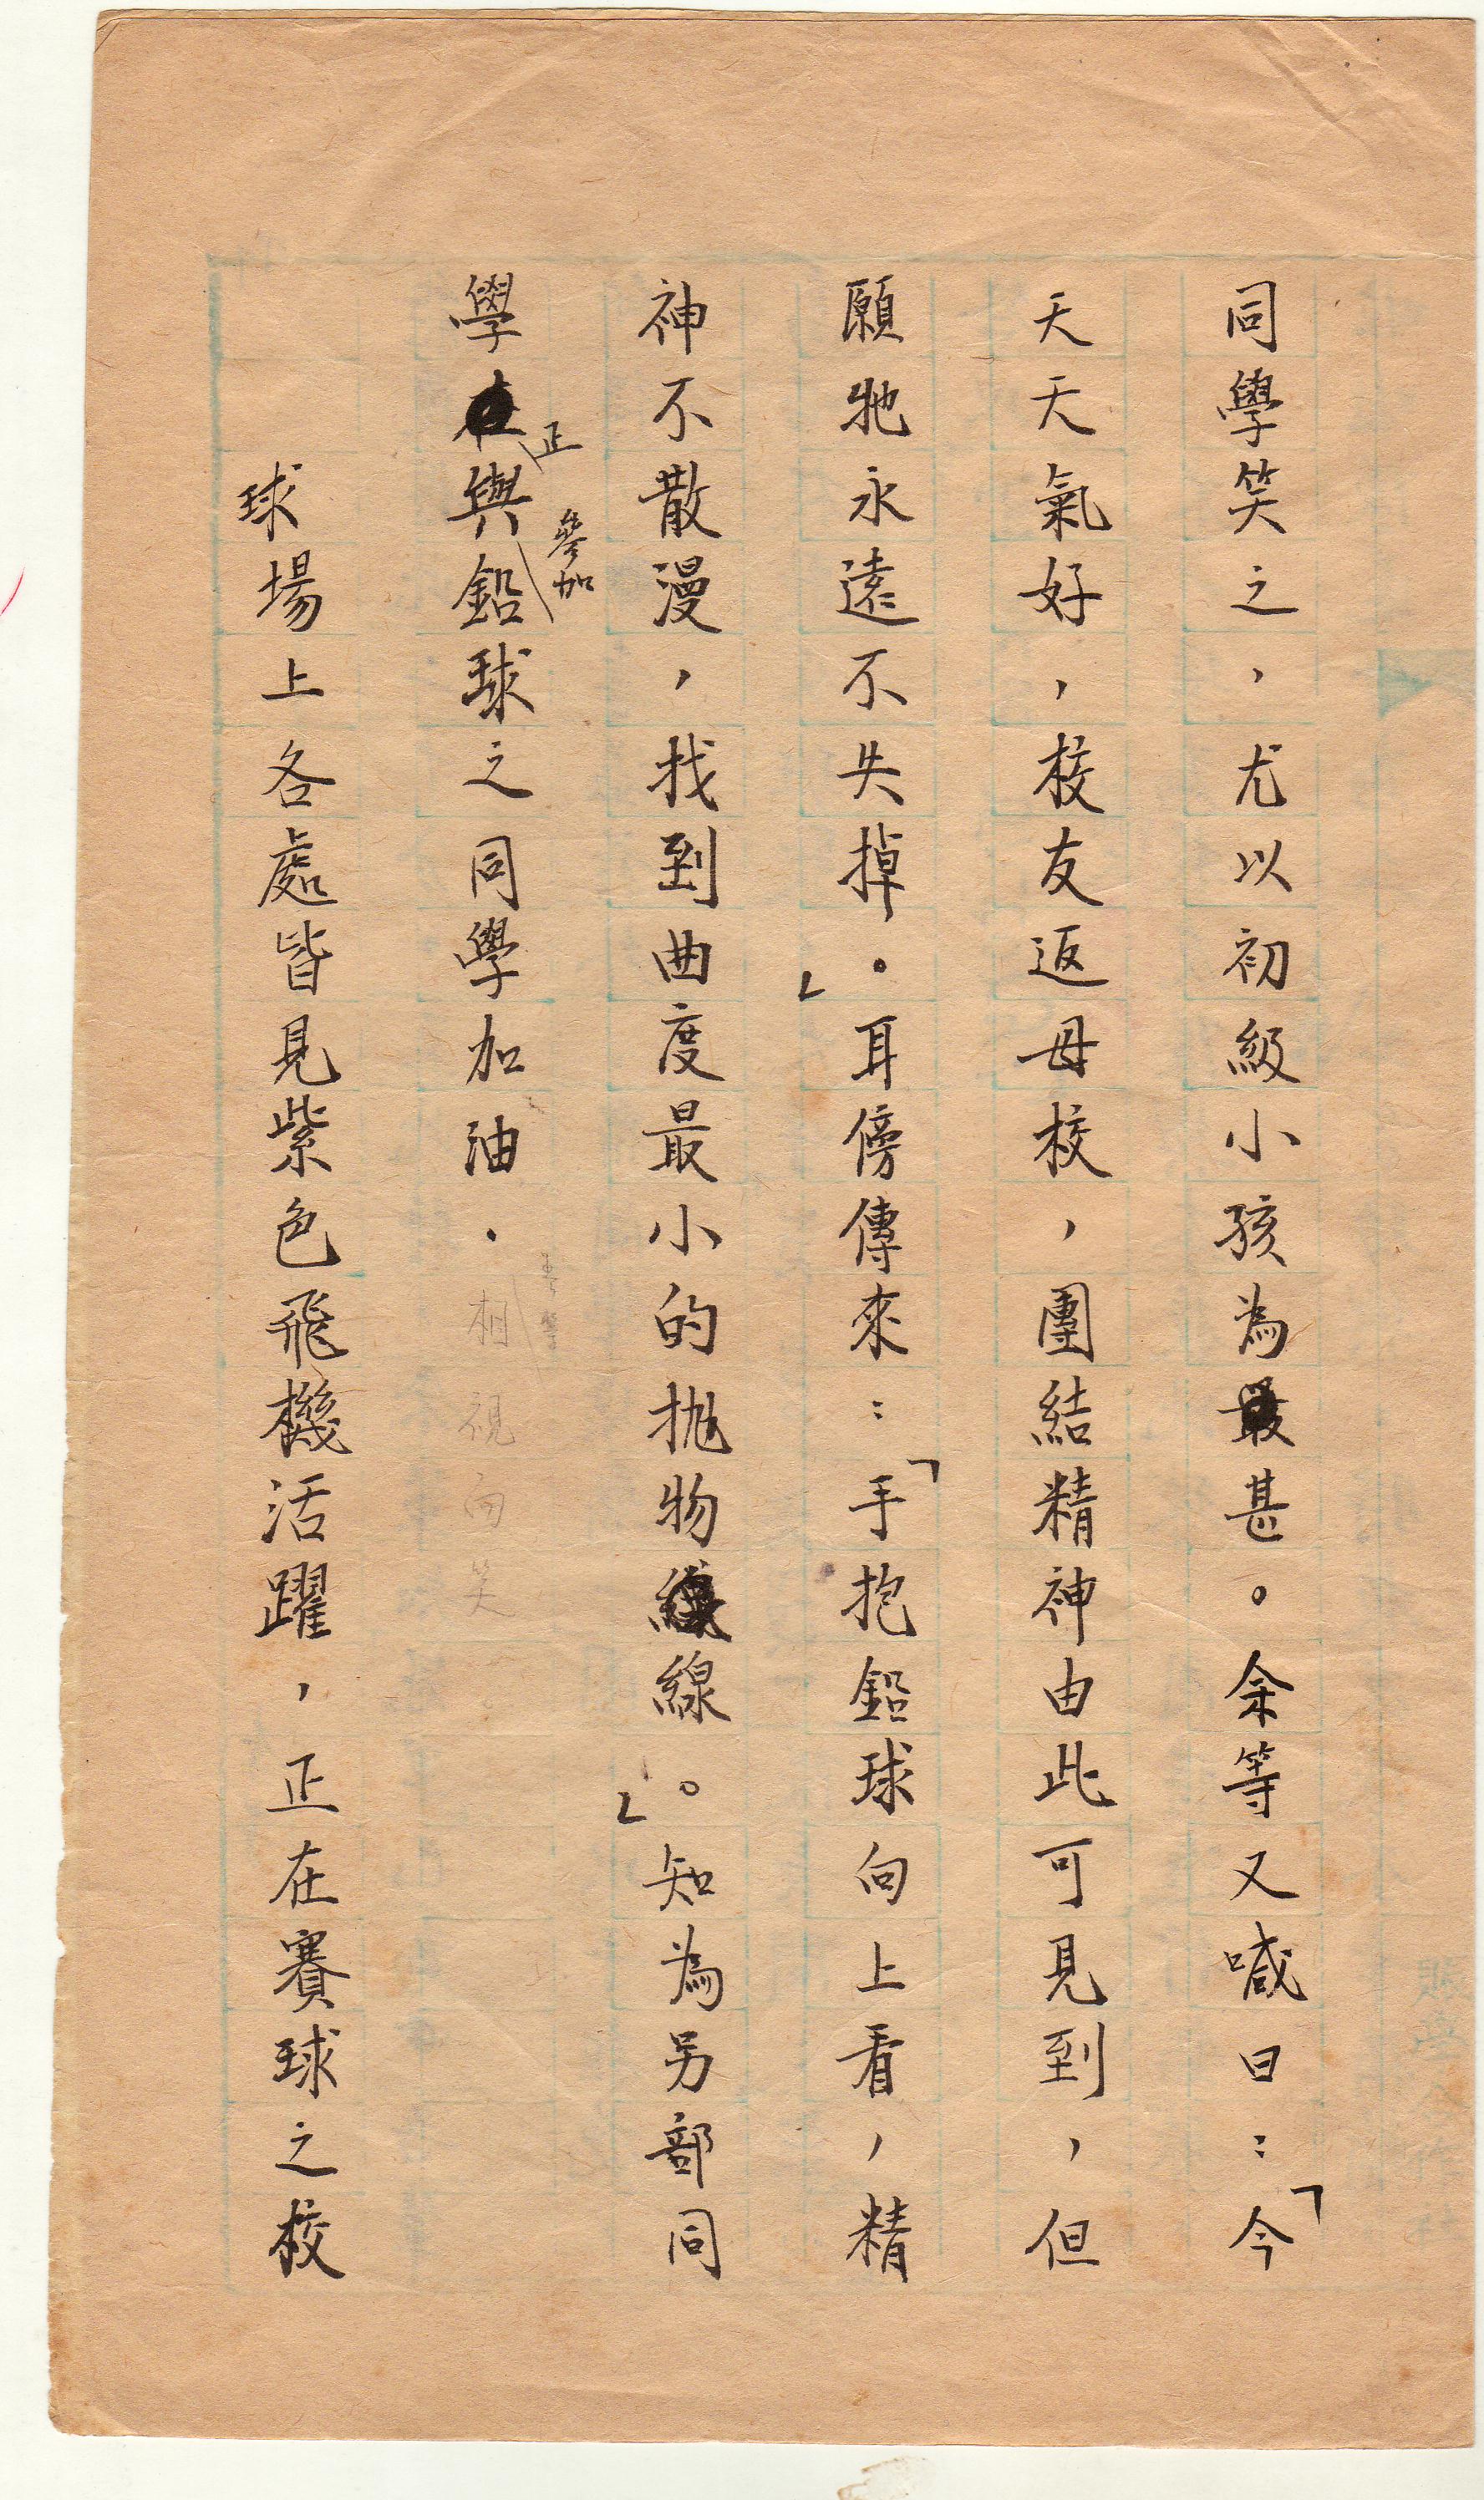 同學笑之，尤以初級小孩為最甚。余等又喊曰：「今
天天氣好，校友返母校，團結精神由此可見到，但
願牠永遠不失掉。」耳傍傳來：「手抱鉛球向上看，精
神不散漫，找到曲度最小的拋物線。」知為另部同
學正與參加鉛球之同學加油．相視而笑
球場上各處皆見紫色飛機活躍，正在賽球之校